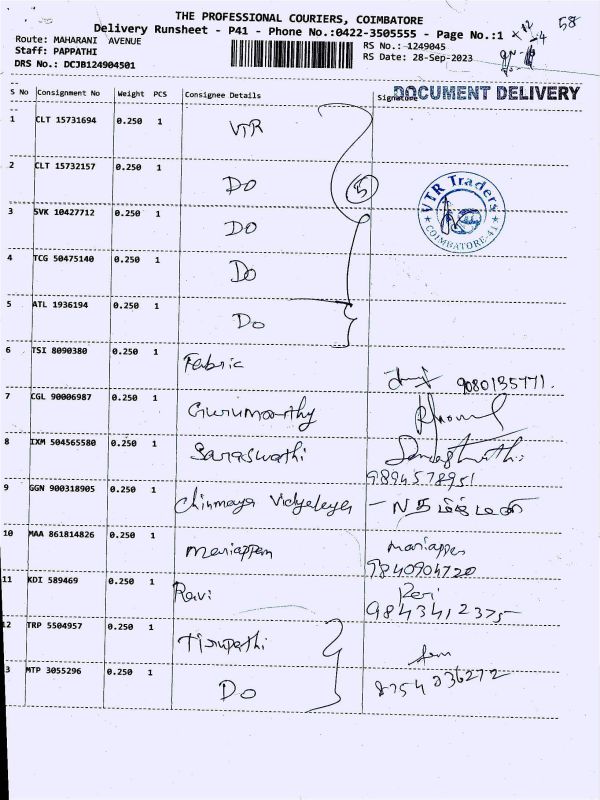 THE PROFESSIONAL COURIERS, COIMBATORE
Delivery Runsheet - P41 - Phone No.:0422-3505555 - Page No.:1
58
Route: MAHARANI AVENUE
RS No.: 1249045
Staff: PAPPATHI
RS Date: 28-Sep-2023
DRS No.: DCJB124904501
DOCUMENT DELIVERY
S No Consignment No Weight PCS Consignee Details Signature
1 CLT 15731694 0.250 1 VTR
2 CLT 15732157 0.250 1 Do
5
VTR Traders
COIMBATORE-41
3 SVK 10427712 0.250 1 Do
4 TCG 50475140 0.250 1 Do
5 ATL 1936194 0.250 1 Do
6 TSI 8090380 0.250 1 Fabric
9080135771.
7 CGL 90006987 0.250 1 Gurumoorthy
8 IXM 504565580 0.250 1 Saraswathi
9894578951
9 GGN 900318905 0.250 1 Chinmaya Vidyalaya
10 MAA 861814826 0.250 1 Mariappan Mariappan
9840904720
11 KDI 589469 0.250 1 Ravi Ravi
9843412375
12 TRP 5504957 0.250 1 Tirupathi
3 MTP 3055296 0.250 1 Do 8754836272